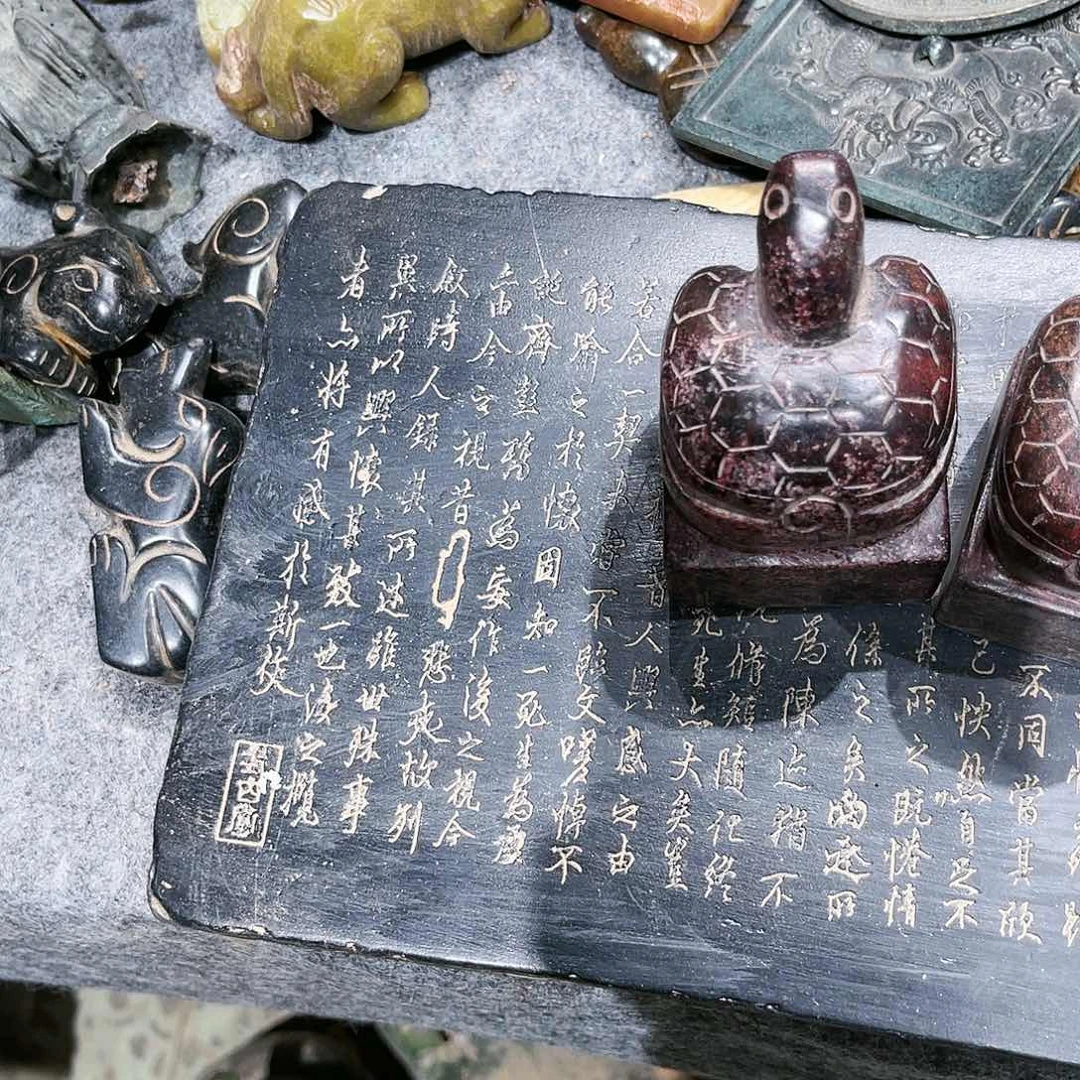 不同當其欣
己怏然自足不
其所之既惓情
係之矣向之所
為陳迹猶不
況脩短隨化終
死生亦大矣豈
昔人興感之由
若合一契未嘗不臨文嗟悼不
能喻之於懷固知一死生為虛
誕齊彭殤為妄作後之視今
亦由今之視昔悲夫故列
敘時人錄其所述雖世殊事
異所以興懷其致一也後之攬
者亦將有感於斯文